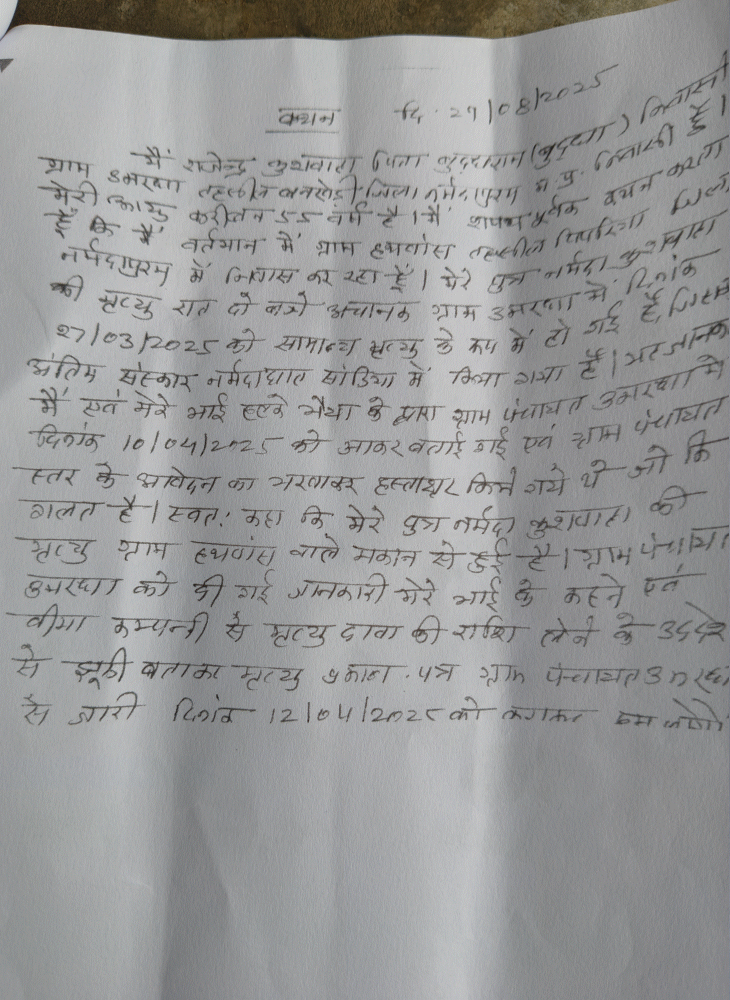 कथन दि. 29/08/2025
मैं राजेन्द्र कुशवाहा पिता बुद्दाराम (बुद्धा) निवासी
ग्राम उमरधा तहसील बनखेडी जिला नर्मदापुरम म.प्र. निवासी हूँ।
मेरी आयु करीबन 55 वर्ष है। मैं शपथ पूर्वक कथन करता
हूँ कि मैं वर्तमान में ग्राम हथवांस तहसील पिपरिया जिला
नर्मदापुरम में निवास कर रहा हूँ। मेरे पुत्र नर्मदा कुशवाहा
की मृत्यु रात दो बजे अचानक ग्राम उमरधा में दिनांक
27/03/2025 को सामान्य मृत्यु के रूप में हो गई है, जिसका
अंतिम संस्कार नर्मदाघाट सांडिया में किया गया है। यह जानकारी
मैं एवं मेरे भाई हल्के भैया के द्वारा ग्राम पंचायत उमरधा में
दिनांक 10/04/2025 को आकर बताई गई एवं ग्राम पंचायत
स्तर के आवेदन का भरवाकर हस्ताक्षर किये गये थे जो कि
गलत है। स्वत: कहा कि मेरे पुत्र नर्मदा कुशवाहा की
मृत्यु ग्राम हथवांस वाले मकान से हुई है। ग्राम पंचायत
उमरधा को दी गई जानकारी मेरे भाई के कहने एवं
बीमा कम्पनी से मृत्यु दावा की राशि लेने के उद्देश्य
से झूठी बताकर मृत्यु प्रमाण-पत्र ग्राम पंचायत उमरधा
से जारी दिनांक 12/04/2025 को कराकर हम लोगो